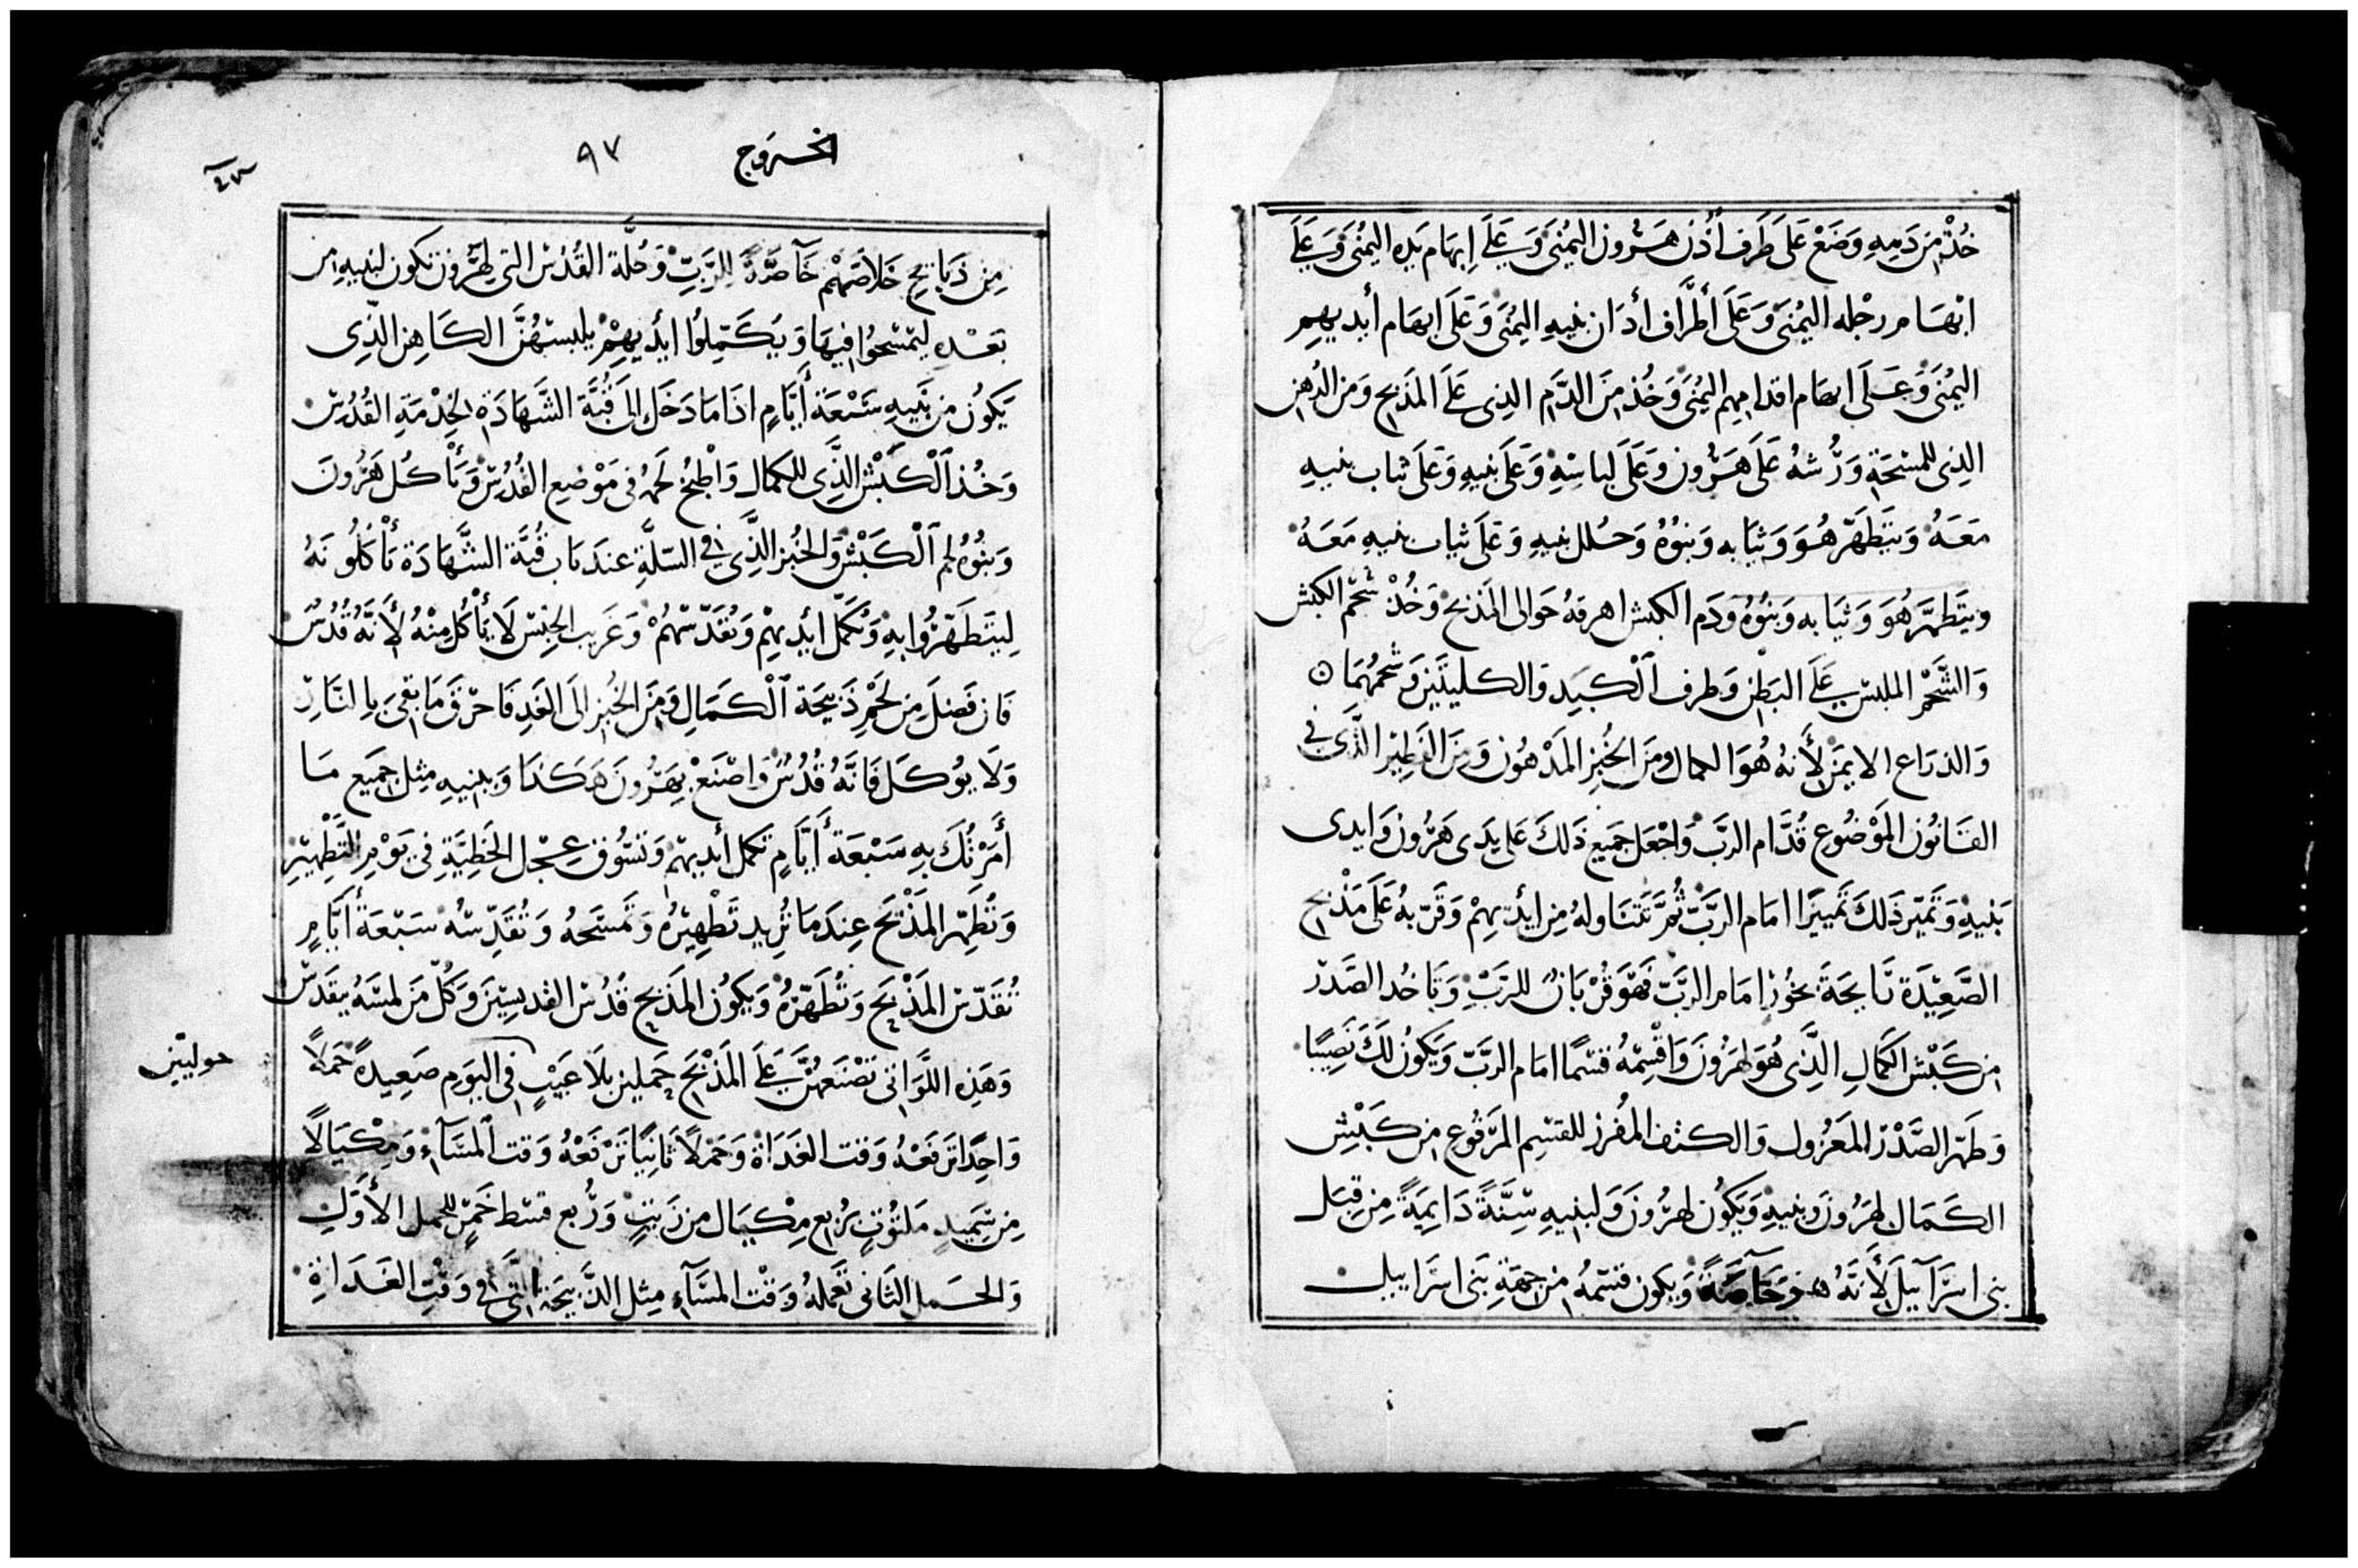 خُذْ مِنَ دَمِهِ وَضَعْ عَلَى طَرَف أُذن هَرُون اليُمْنَى وَعَلَى إبهَام يَدِه اليُمْنَى وَعَلَى
ابْهَام رجْله اليُمْنَى وَعَلَى أَطْرَاف أدَان بنيهِ اليُمْنَى وَعَلَى ابهَام أيديهِم
اليُمْنَى وَعَلَى ابهَام اقدامِهِم اليُمْنَى وَخُذ مِنَ الدَّم الذِى عَلَى المَذبَح وَمن الدُهن
الذِى للمسْحَةِ وَرُشهُ عَلَى هَرُون وَعَلَى لباسِهِ وَعَلَى بنيهِ وَعَلَى ثياب بنيهِ
مَعَهُ وَيَتَطَهَّر هُوَ وَثيَابه وَبَنُوهُ وَحُلل بنيهِ وَعَلَى ثياب بنيهِ مَعَهُ
ويَتَطَهَّر هُوَ وَثيَابه وَبَنُوهُ وَدَم الكبش اهرقهُ حَوالى المَذبح وَخُذْ شَحْم الكبش
وَالشَّحْم الملبس عَلَى البَطن وَطرف اَلْكَبِد وَالكليتَيْن وَشحمُهُمَا
وَالذرَاع الايمَن لأَنهُ هُوَ الكمال ومَن الخُبز المَدْهُون وَمِنَ الفَطِير الذَّى فى
القَانُون المَوْضُوع قُدَّام الربَّ وَاجْعَل جَمِيعَ ذَلكَ عَلى يَدَى هَرُون وَايدى
بَنيهِ وَتَميّز ذَلكَ تَمييزًا امَام الربَّ ثُمَّ تَتَنَاولهُ مِن ايْديهِمْ وَقَرّبهُ عَلَى مَذْبح
الصَّعِيْدَة رَايحَة بخُور امَام الربَّ فَهْوَ قُرْبَانٌ للرَبّ وَتَاخُد الصَدْر
مِن كَبْش الكَمَالِ الذَّى هُوَ لهَرُونَ وَاقْسِمْهُ قسْمًا امَام الربَّ وَيَكُونُ لَكَ نَصِيْبًا
وَطَهّر الصَّدْر المَعْزُول وَالكتف المُفرز للقسْمِ المَرْفُوع مِن كَبْشِ
الكَمَال لهَرُون وبنيهِ وَيَكُون لهَرُونَ وَلبنيهِ سُنَّةً دَايمَةً مِن قِبَل
بنى اسرَآييلَ لأَنَّهُ خَآصَةً وَيكون قسْمهُ مِن جهَةِ بَنى اسرَاييل
الخروج
٩٧
مِن ذَبَايح خَلاَصَهُم خَآصَّةً للرَّبِّ وَحُلَّة القُدُس التى لهَرُون تكون لبَنيهِ من
بَعْدِه ليُمْسَحُوا فيهَا وَيُكَمِّلُوا ايْديهِمْ يلبسْهُنَّ الكَاهن الذِى
يَكُونُ مِن بَنيهِ سَبْعَة أَيَّامٍ اذَا مَا دَخَل الى قُبَّة الشَّهَادَة لخِدْمَةِ القُدُس
وَخُذ اَلْكَبْش الذَّى للكمال وَاطْبُخ لحمَهُ فى مَوْضع القُدُس وَيَأْكُل هَرُونَ
وَبنُوهُ لحم اَلْكَبْش وَالخُبز الذَّى فى السَلَّةِ عندَ بَاب قُبَّة الشَّهَادَة يَأْكلُونَهُ
لِيَتَطَهَّرُوا بهِ وَتُكَمَّل ايْديهِم وَتُقدّسْهُمْ وَغَريب الجِنس لاَ يَأْكُل مِنْهُ لأَنَّهُ قُدُس
فَان فَضلَ مِن لَحْمِ ذَبيحَة اَلْكَمَالِ وَمِنَ الخُبز الَى الغَدِ فَاحْرِق مَا بقىَ بالنَّار
وَلاَ يُوكَل فَانَّهُ قُدُسٌ وَاصْنَعْ بهَرُونَ هَكذَا وَببنيهِ مِثل جَمِيع مَا
أَمَرْتُكَ بهِ سَبْعَة أَيَّامٍ تكمل أيديهم وَتسُوق عِجْل الخَطِيَّةِ فى يَوْمِ التَّطْهِيْر
وَتُطَهِّر المَذْبَح عِندَمَا تُريد تَطْهِيْرهُ وَتَمْسَحهُ وَتُقَدّسهُ سَبْعَة أَيَّام
تُقَدّس المَذْبَح وَتُطَهّرهُ وَيَكُون المَذبح قُدُس القديسِيْنَ وَكُلّ مَن لمسَهُ يتقَدَّس
وَهَذِه اللوَاتى تصْنَعهُنَّ عَلَى المَذْبَح حَملَين بلاَ عَيْبٍ فى اليَوم صَعِيدةً حَملاً
حوليّين
وَاحِدًا ترفعْهُ وَقت الغَدَاة وَحَمْلاً ثَانيًا تَرْفَعْهُ وَقت المَسَآءِ وَمِكْيَالاً
مِن سَّمِيدٍ مَلتُوْتٍ بربع مِكْيَال من زَيْتٍ وَرُبع قسْط خَمْرٍ للحمل الأَوَّلِ
وَالحَمل الثَانى تَعْملهُ وَقْت المَسَآءِ مِثل الذَّبيحَة التَّى فى وَقْتِ الغَدَاةِ